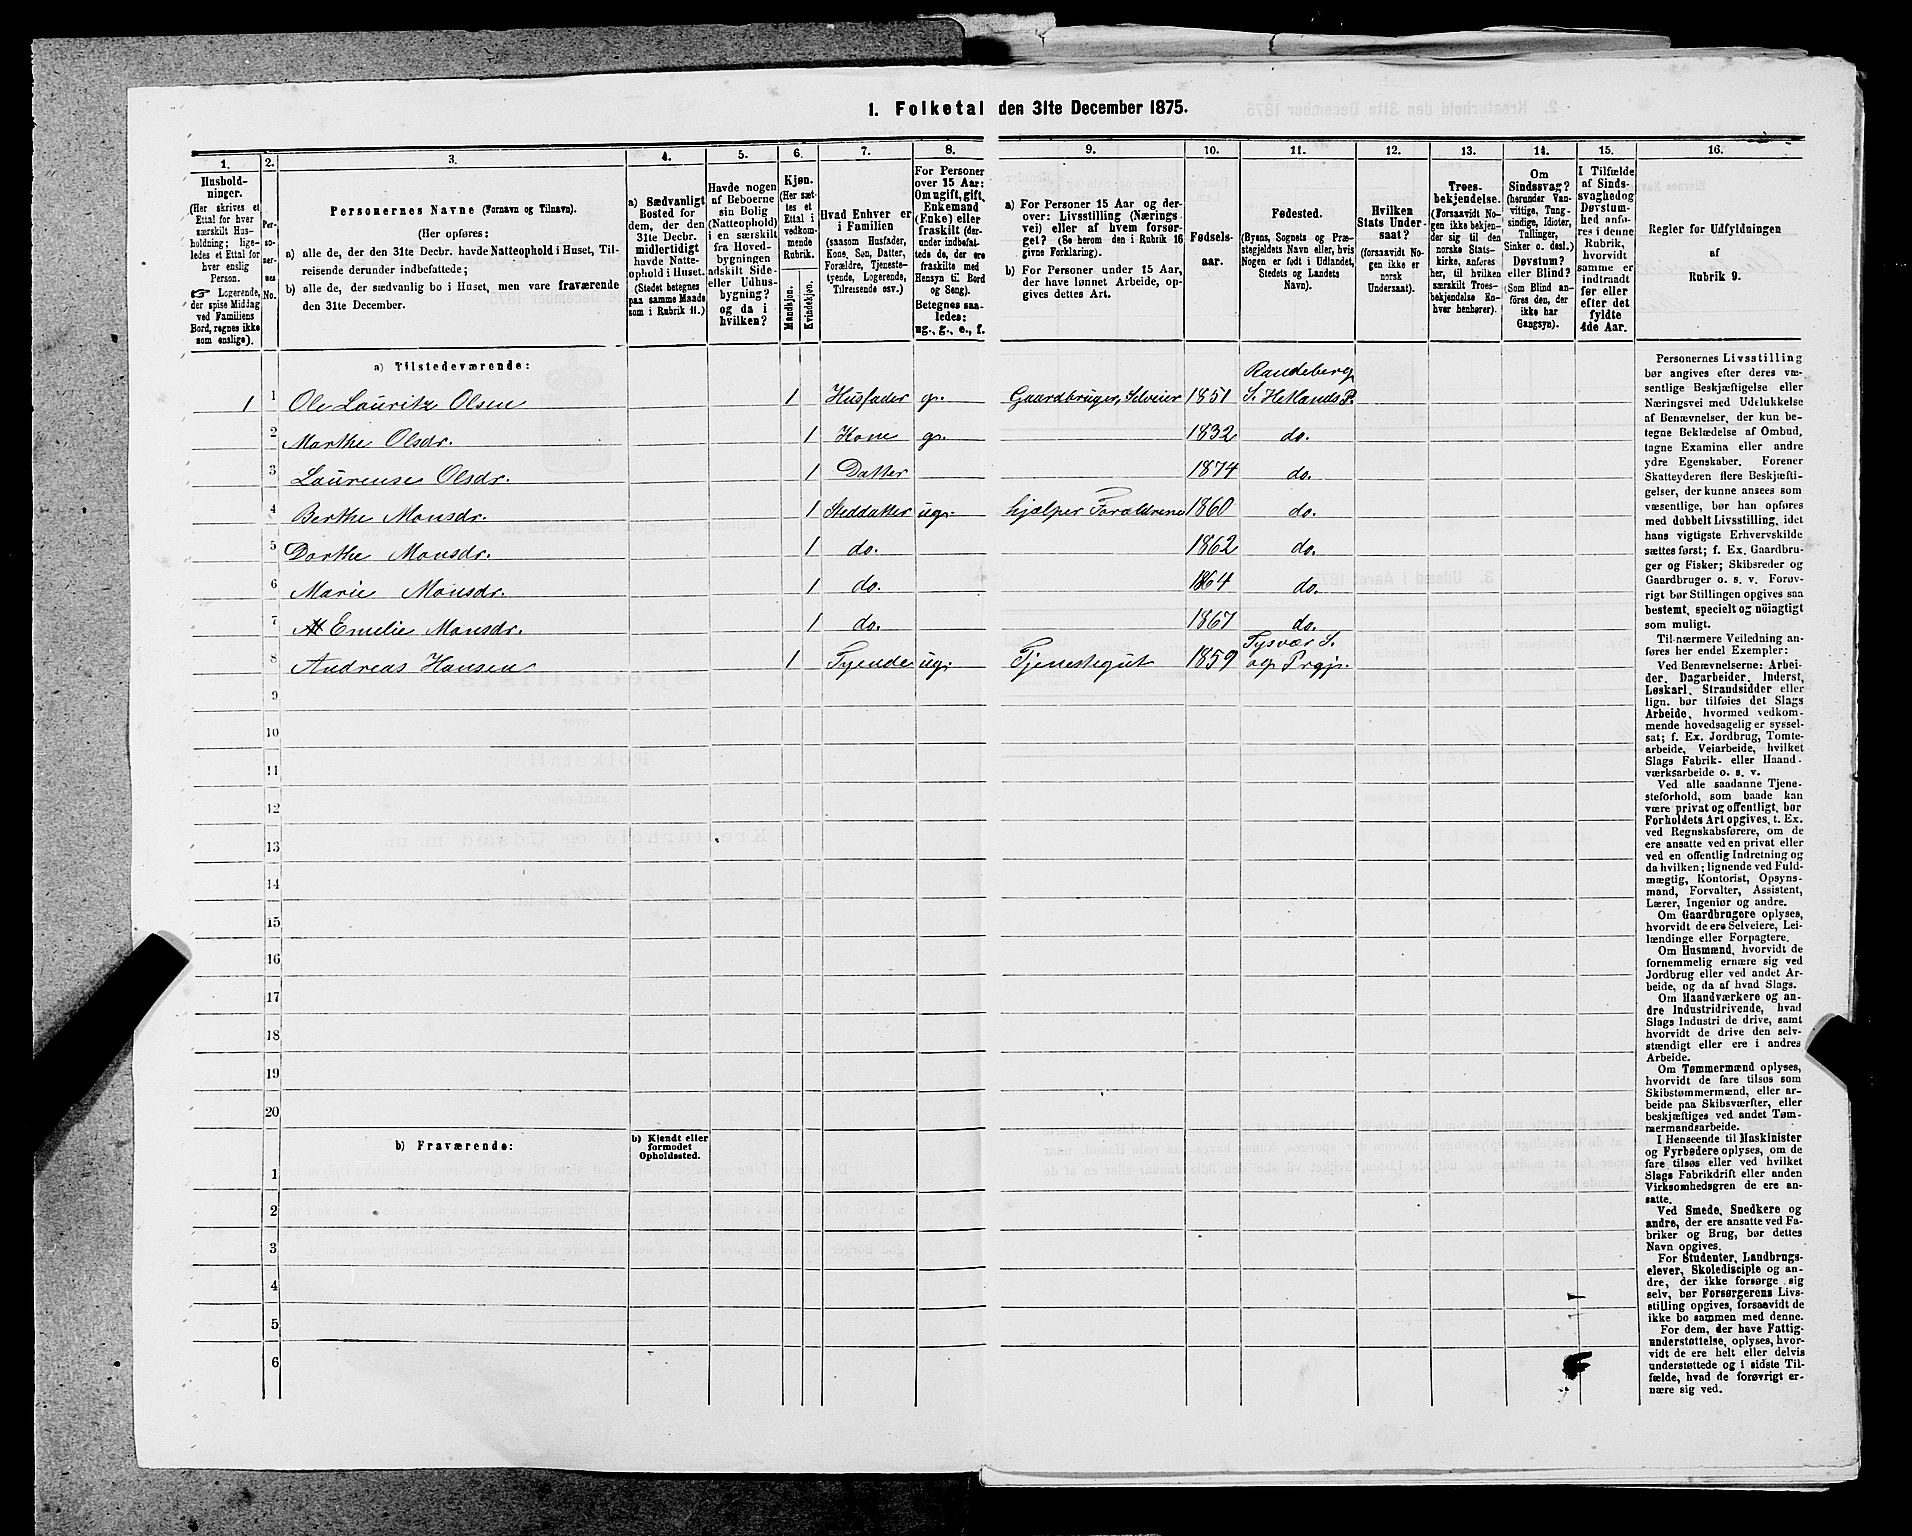 1. Folketal den 31te December 1875.
1. 2. 3. 4. 5. 6. 7. 8. 9. 10. 11. 12. 13. 14. 15. 16.
Hushold-
ninger.
(Her skrives et
Ettal for hver
særskilt Hus-
holdning; lige-
ledes et Ettal for
hver enslig
Person.
☞ Logerende,
der spise Middag
ved Familiens
Bord, regnes ikke
som enslige).
Per-
so-
ner-
nes
No.
Personernes Navne (Fornavn og Tilnavn).
(Her opføres:
a) alle de, der den 31te Decbr. havde Natteophold i Huset, Til-
reisende derunder indbefattede;
b) alle de, der sædvanlig bo i Huset, men vare fraværende
den 31te December.
a) Sædvanligt
Bosted for
dem, der den
31te Decbr.
midlertidigt
havde Natte-
ophold i Huset.
(Stedet betegnes
paa samme Maade
som i Rubrik 11.)
Havde nogen
af Beboerne
sin Bolig
(Natteophold)
i en særskilt
fra Hoved-
bygningen
adskilt Side-
eller Udhus-
bygning?
og da i
hvilken?
Kjøn.
(Her sæt-
tes et
Ettal i
vedkom-
mende
Rubrik.
Mandkjøn.
Kvindekjøn.
Hvad Enhver er
i Familien
(saasom Husfader,
Kone, Søn, Datter,
Forældre, Tjeneste-
tyende, Logerende,
Tilreisende osv.)
For Personer
over 15 Aar:
Om ugift, gift,
Enkemand
(Enke) eller
fraskilt (der-
under indbefat-
tede de, der ere
fraskilte med
Hensyn til Bord
og Seng).
Betegnes saa-
ledes:
ug., g., e., f.
a) For Personer 15 Aar og der-
over: Livsstilling (Nærings-
vei) eller af hvem forsør-
get? (Se herom den i Rubrik 16
givne Forklaring).
b) For Personer under 15 Aar,
der have lønnet Arbeide, op-
gives dettes Art.
Fødsels-
aar.
Fødested.
(Byens, Sognets og Præ-
stegjeldets Navn eller, hvis
Nogen er født i Udlandet,
Stedets og Landets
Navn).
Hvilken
Stats Under-
saat?
(forsaavidt No-
gen ikke er
norsk
Undersaat).
Troes-
bekjendelse.
(Forsaavidt No-
gen ikke bekjen-
der sig til den
norske Stats-
kirke, anføres
her, til hvilken
særskilt Troes-
bekjendelse En-
hver henhører).
Om
Sindssvag?
(herunder Van-
vittige, Tung-
sindige, Idioter,
Tullinger,
Sinker o. desl.)
Døvstum?
eller Blind?
(Som Blind an-
føres den, der
ikke har
Gangsyn).
I Tilfælde
af Sinds-
svaghed og
Døvstum-
hed anfø-
res i denne
Rubrik,
hvorvidt
samme er
indtraadt
før eller
efter det
fyldte
4de Aar.
Regler for Udfyldningen
af
Rubrik 9.
a) Tilstedeværende:
Randeberg
1 1 Ole Lauritz Olsen 1 Husfader g. Gaardbruger, Selveier 1851 S. Hetlands P.
2 Marthe Olsdr. 1 Kone g. 1832 do.
3 Laurense Olsdr. 1 Datter 1874 do.
4 Berthe Monsdr. 1 Steddatter ug. hjælper Forældrene 1860 do.
5 Dorthe Monsdr. 1 do. 1862 do.
6 Marie Monsdr. 1 do. 1864 do.
7 Emelie Monsdr. 1 do. 1867 do.
Tysvær S.
8 Andreas Hansen 1 Tyende ug. Tjenestegut 1859 og Prgj.
9
10
11
12
13
14
15
16
17
18
19
20
b) Fraværende:
b) Kjendt eller
formodet
Opholdssted.
1
2
3
4
5
6
Personernes Livsstilling
bør angives efter deres væ-
sentlige Beskjæftigelse eller
Næringsvei med Udelukkelse
af Benævnelser, der kun be-
tegne Beklædelse af Ombud,
tagne Examina eller andre
ydre Egenskaber. Forener
Skatteyderen flere Beskjæfti-
gelser, der kunne ansees som
væsentlige, bør han opføres
med dobbelt Livsstilling, idet
hans vigtigste Erhvervskilde
sættes først; f. Ex. Gaardbru-
ger og Fisker; Skibsreder og
Gaardbruger o. s. v. Forøv-
rigt bør Stillingen opgives saa
bestemt, specielt og nøiagtigt
som muligt.
Til nærmere Veiledning an-
føres her endel Exempler:
Ved Benævnelserne: Arbei-
der, Dagarbeider, Inderst,
Løskarl, Strandsidder eller
lign. bør tilføies det Slags
Arbeide, hvormed vedkom-
mende hovedsagelig er syssel-
sat; f. Ex. Jordbrug, Tomte-
arbeide, Veiarbeide, hvilket
Slags Fabrik- eller Haand-
værksarbeide o. s. v.
Ved alle saadanne Tjene-
steforhold, som baade kan
være privat og offentligt, bør
Forholdets Art opgives, t. Ex.
ved Regnskabsførere, om de
ere ansatte ved en privat eller
ved en offentlig Indretning og
da hvilken; lignende ved Fuld-
mægtig, Kontorist, Opsyns-
mand, Forvalter, Assistent,
Lærer, Ingeniør og andre.
Om Gaardbrugere oplyses,
hvorvidt de ere Selveiere, Lei-
lændinge eller Forpagtere.
Om Husmænd, hvorvidt de
fornemmelig ernære sig ved
Jordbrug eller ved andet Ar-
beide, og da af hvad Slags.
Om Haandværkere og an-
dre Industridrivende, hvad
Slags Industri de drive, samt
hvorvidt de drive den selv-
stændigt eller ere i andres
Arbeide.
Om Tømmermænd oplyses,
hvorvidt de fare tilsøs som
Skibstømmermænd, eller ar-
beide paa Skibsværfter, eller
beskjæftiges ved andet Tøm-
mermandsarbeide.
I Henseende til Maskinister
og Fyrbødere oplyses, om de
fare tilsøs eller ved hvilket
Slags Fabrikdrift eller anden
Virksomhedsgren de ere an-
satte.
Ved Smede, Snedkere og
andre, der ere ansatte ved Fa-
briker og Brug, bør dettes
Navn opgives.
For Studenter, Landbrugs-
elever, Skoledisciple og an-
dre, der ikke forsørge sig
selv, bør Forsørgerens Livs-
stilling opgives, forsaavidt de
ikke bo sammen med denne.
For dem, der have Fattig-
understøttelse, oplyses, hvor-
vidt de ere helt eller delvis
understøttede og i sidste Til-
fælde, hvad de forøvrigt er-
nære sig ved.